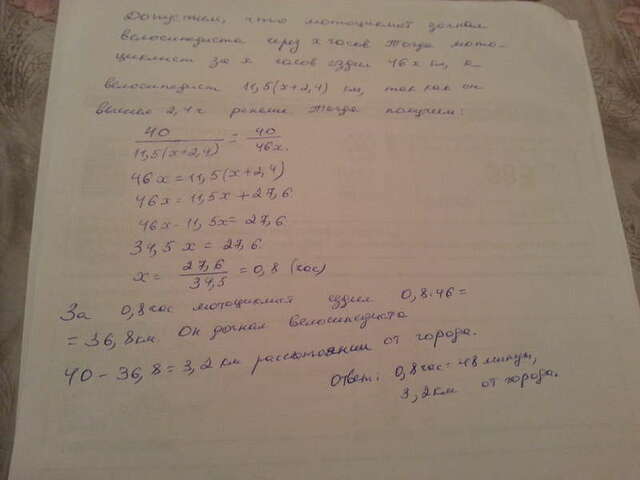 Допустим, что мотоциклист догнал
велосипедиста через x часов Тогда мото-
циклист за x часов ездил 46x км, а
велосипедист 11,5(x+2,4) км, так как он
выехал 2,4 ч раньше Тогда получим:
40/11,5(x+2,4) = 40/46x.
46x = 11,5(x+2,4)
46x = 11,5x + 27,6
46x - 11,5x = 27,6
34,5x = 27,6.
x = 27,6/34,5 = 0,8 (час)
За 0,8 час мотоциклист ездил 0,8·46 =
= 36,8км Он догнал велосипедиста
40 - 36,8 = 3,2 км расстоянии от города.
Ответ: 0,8час = 48 минут,
3,2км от города.